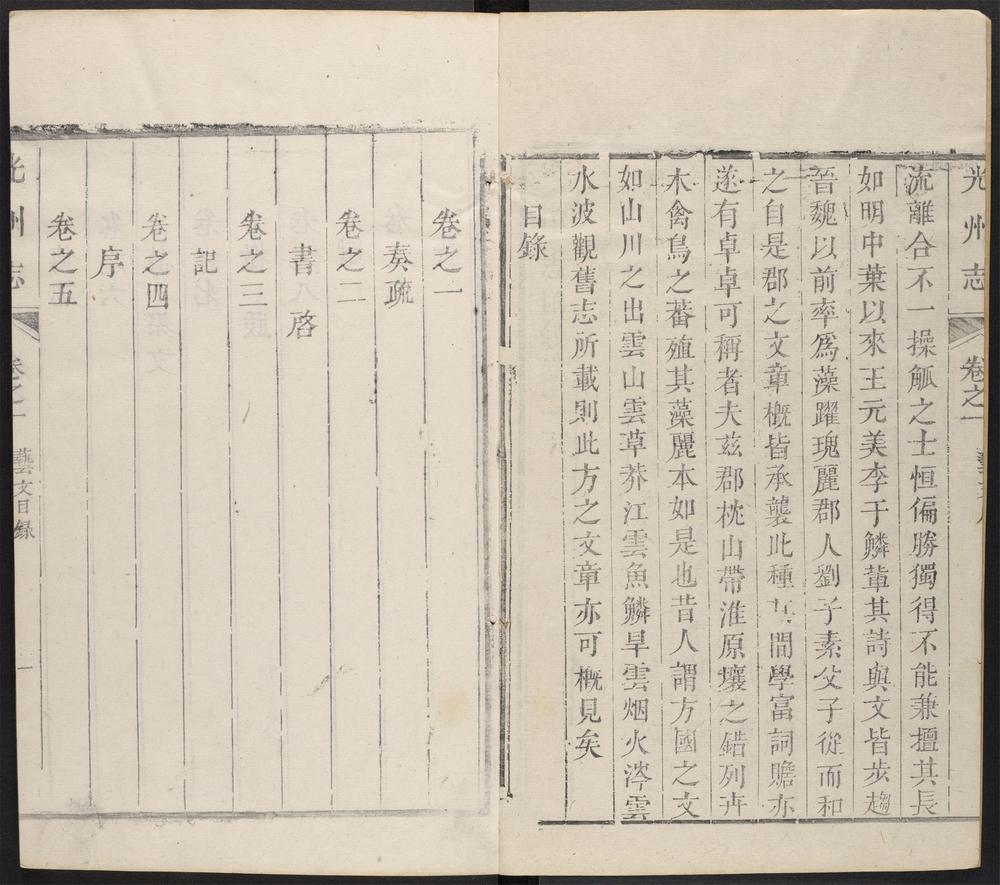 光州志
卷之一
流離合不一操觚之士恒偏勝獨得不能兼擅其長
如明中葉以來王元美李于鱗輩其詩與文皆步趨
晉魏以前率爲藻躍瑰麗郡人劉子素父子從而和
之自是郡之文章概皆承襲此種間學富詞贍亦
遂有卓卓可稱者夫兹郡枕山帶淮原壤之錯列卉
木禽鳥之蕃殖其藻麗本如是也昔人謂方國之文
如山川之出雲山雲草莽江雲魚鱗旱雲烟火涔雲
水波觀舊志所載則此方之文章亦可概見矣
目錄
卷之一
奏疏
卷之二
書啓
卷之三
記
卷之四
序
卷之五
光州志
卷之一
藝文目錄
一